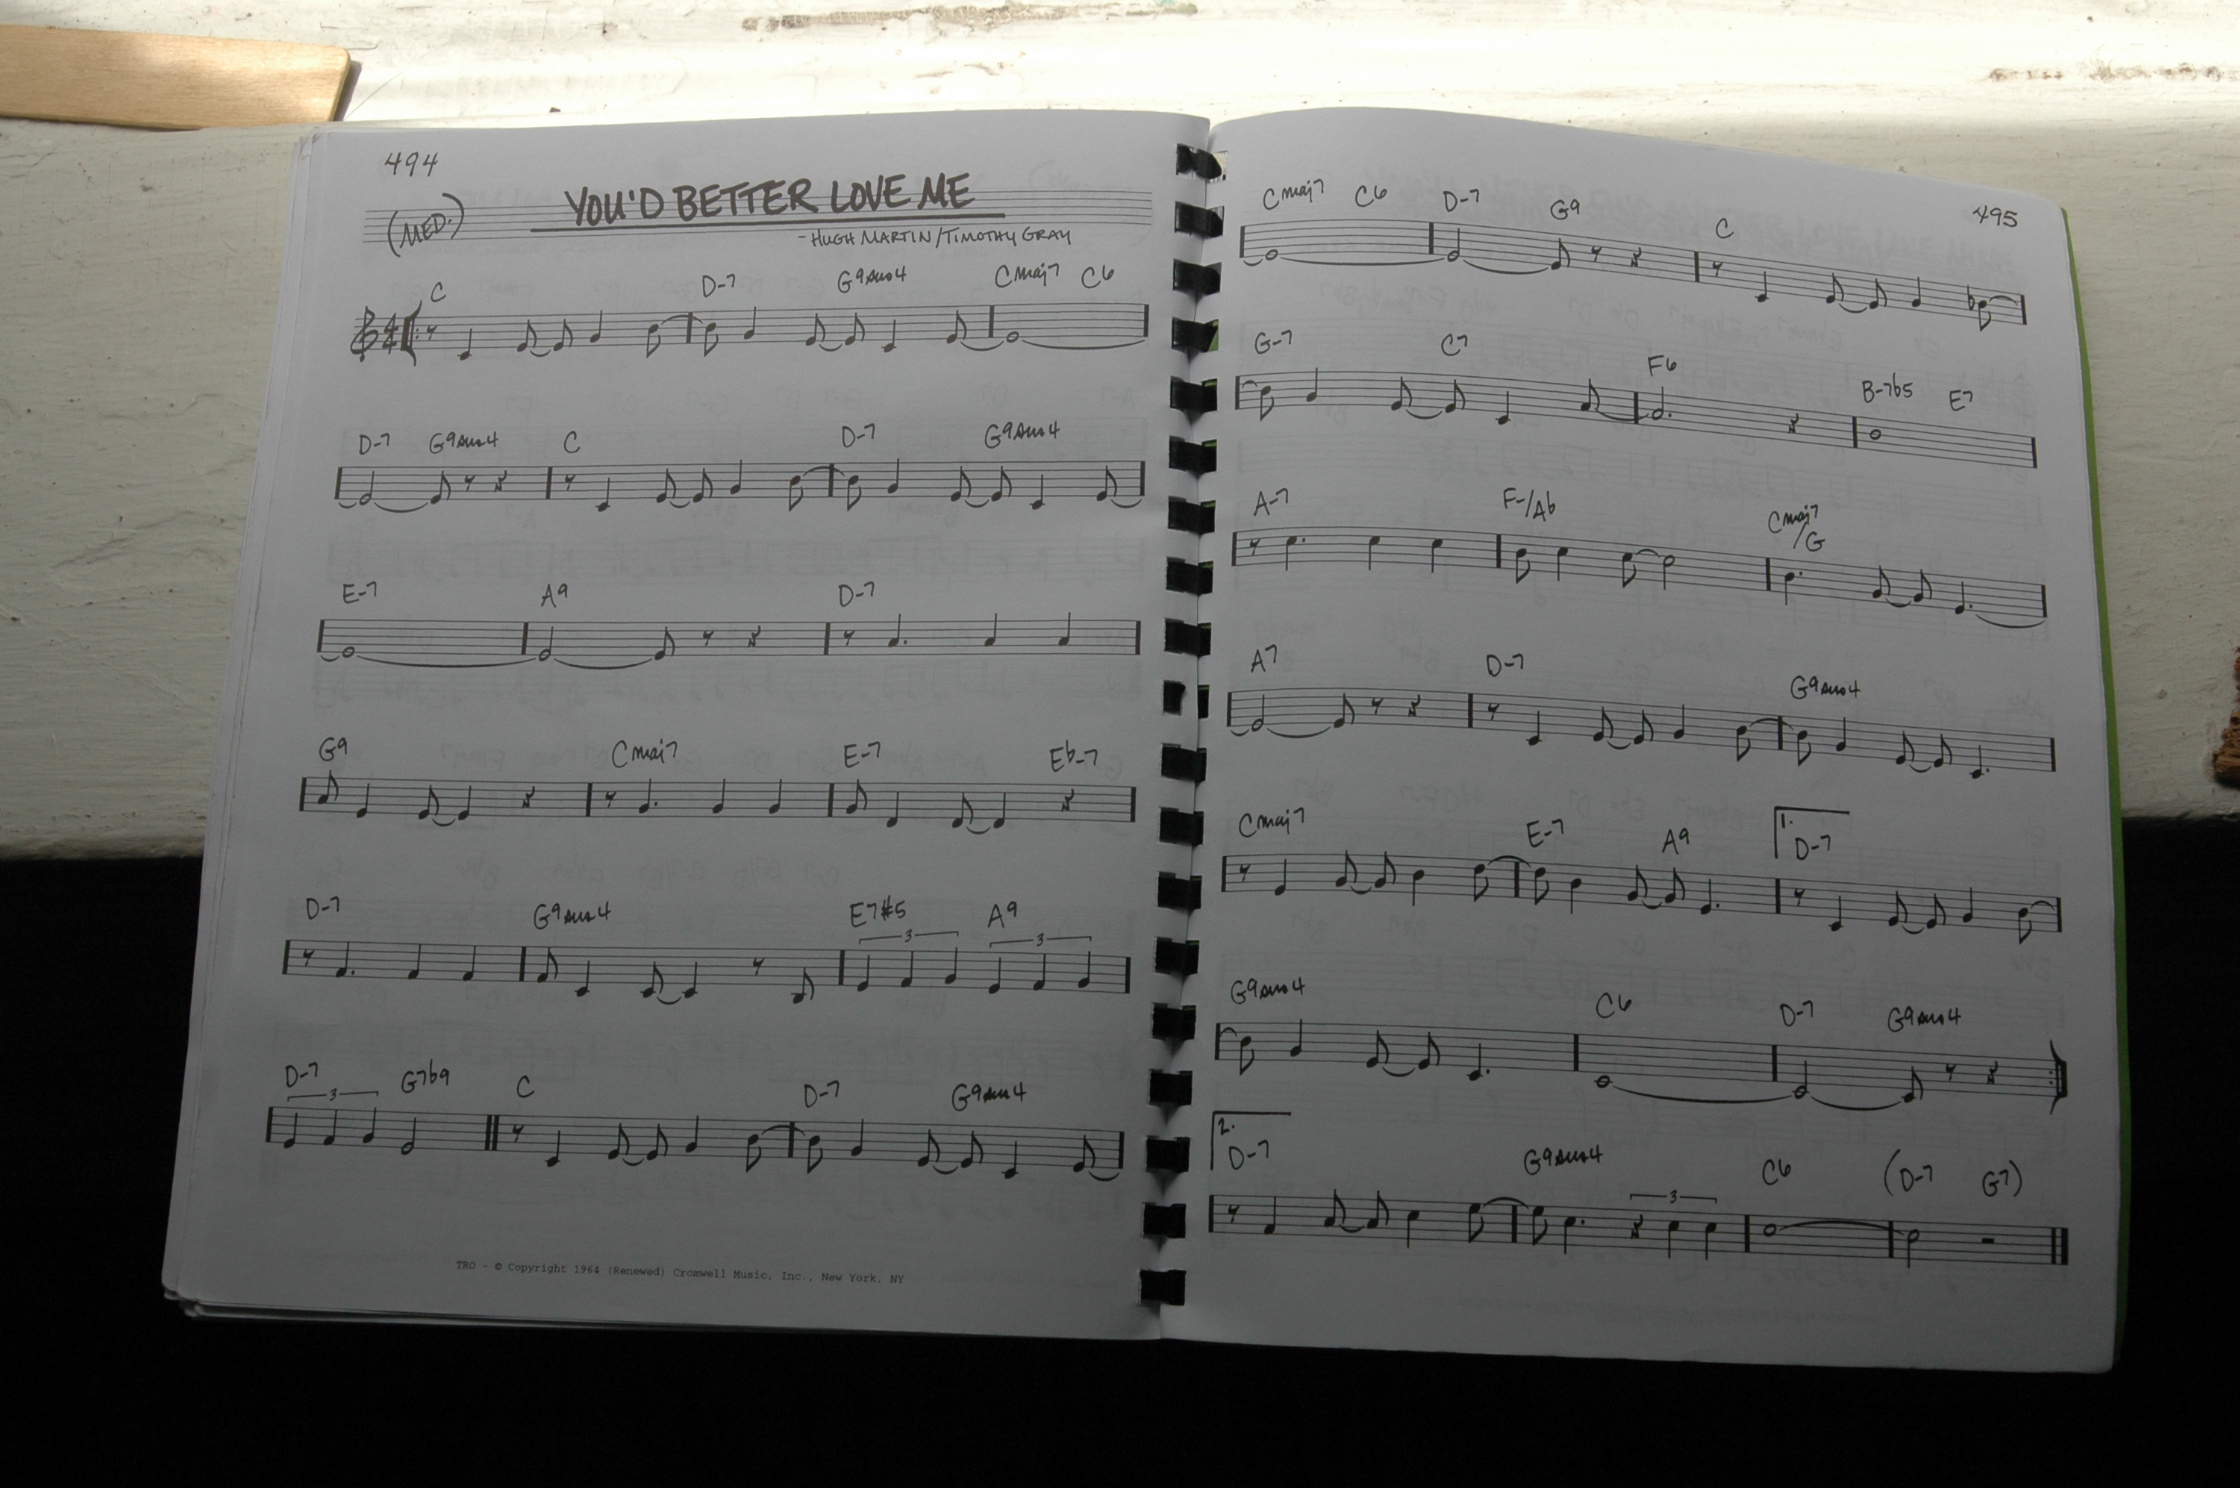 494
YOU'D BETTER LOVE ME
(MED.)
- HUGH MARTIN/TIMOTHY GRAY
C D-7 G9sus4 Cmaj7 C6
D-7 G9sus4 C D-7 G9sus4
E-7 A9 D-7
G9 Cmaj7 E-7 Eb-7
D-7 G9sus4 E7#5 A9
3 3
D-7 G7b9 C D-7 G9sus4
3
TRO - © Copyright 1964 (Renewed) Cromwell Music, Inc., New York, NY
495
Cmaj7 C6 D-7 G9 C
G-7 C7 F6 B-7b5 E7
A-7 F-/Ab Cmaj7/G
A7 D-7 G9sus4
Cmaj7 E-7 A9 1. D-7
G9sus4 C6 D-7 G9sus4
2. D-7 G9sus4 C6 (D-7 G7)
3